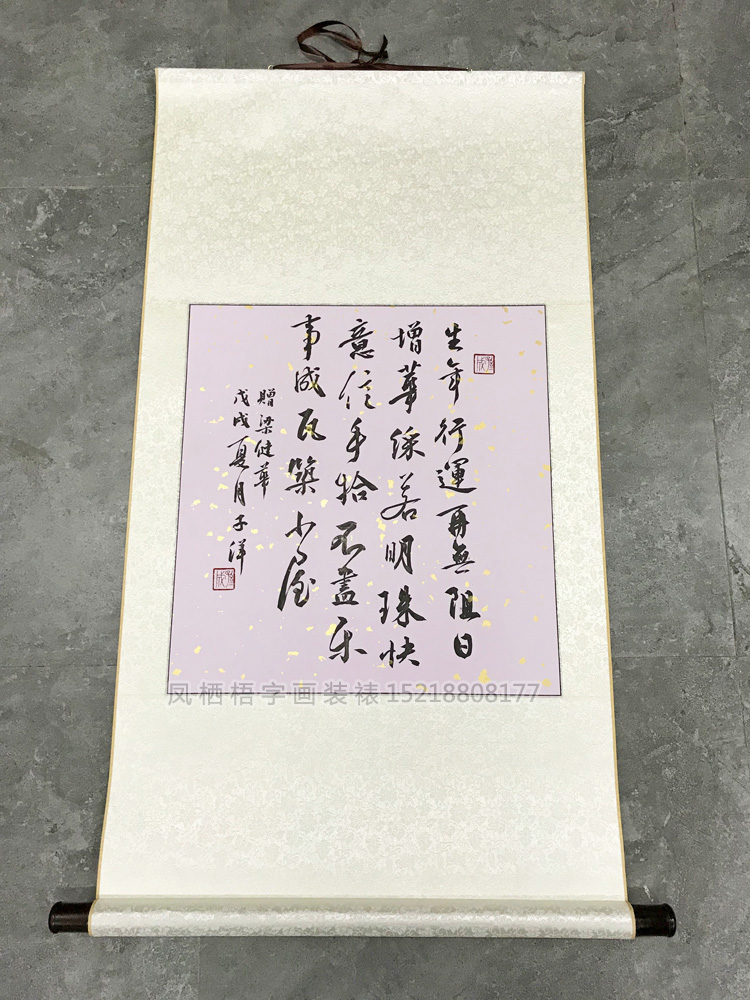 生年行運再無阻日
增華綵若明珠快
意信手拾不盡乐
事成瓦築小屋
贈梁健華
戊戌夏月子洋
凤栖梧字画装裱15218808177